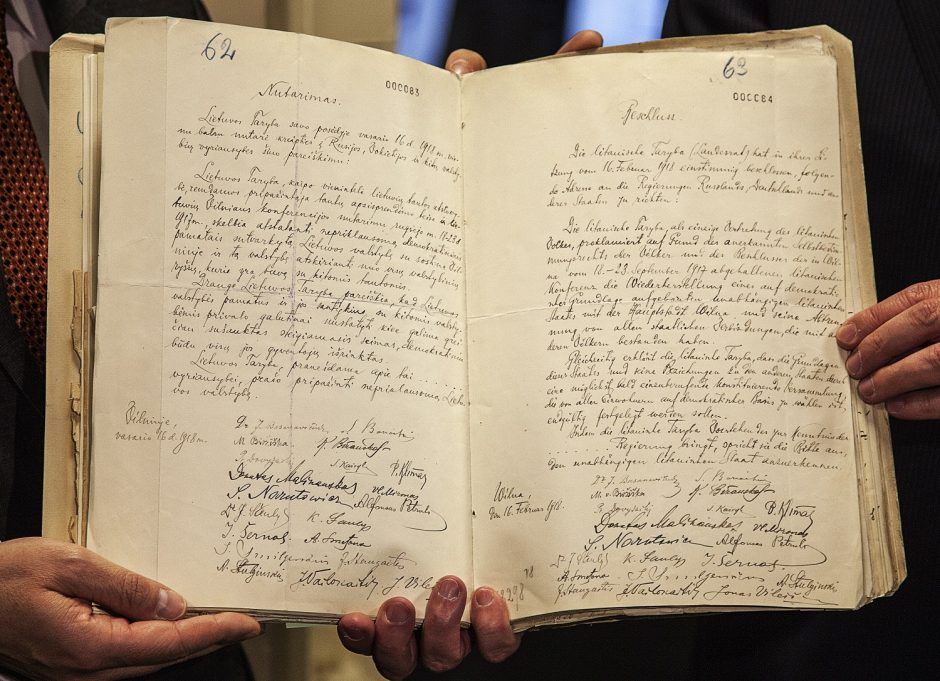 62
000083
Nutarimas.
Lietuvos Taryba savo posėdyje vasario 16 d. 1918 m. vie-
nu balsu nutarė kreiptis į Rusijos, Vokietijos ir kitų valsty-
bių vyriausybes šiuo pareiškimu:
Lietuvos Taryba, kaipo vienintelė lietuvių tautos atstovy-
bė, remdamos pripažintąja tautų apsisprendimo teise ir lie-
tuvių Vilniaus konferencijos nutarimu rugsėjo m. 18-23 d.
1917 m., skelbia atstatanti nepriklausomą, demokratiniais
pamatais sutvarkytą Lietuvos valstybę su sostine Vil-
niuje ir tą valstybę atskirianti nuo visų valstybinių
ryšių, kurie yra buvę su kitomis tautomis.
Drauge Lietuvos Taryba pareiškia, kad Lietuvos
valstybės pamatus ir jos santykius su kitomis valsty-
bėmis privalo galutinai nustatyti kiek galima grei-
čiau sušauktas steigiamasis seimas, demokratiniu
būdu visų jos gyventojų išrinktas.
Lietuvos Taryba, pranešdama apie tai ........
vyriausybei, prašo pripažinti nepriklausomą Lietu-
vos valstybę.
Vilniuje,
vasario 16 d. 1918 m.
Dr. J. Basanavičius S. Banaitis
M. Biržiška K. Bizauskas
P. Dovydaitis S. Kairys P. Klimas
Donatas Malinauskas Vl. Mironas
S. Narutowicz Alfonsas Petrulis
Dr J. Šaulys K. Šaulys
J. Šernas A. Smetona
J. Smilgevičius J. Staugaitis
A. Stulginskis J. Vailokaitis J. Vileišis
63
000084
Beschluss.
Die litauische Taryba (Landesrat) hat in ihrer Sit-
zung vom 16. Februar 1918 einstimmig beschlossen, folgen-
de Adresse an die Regierungen Russlands, Deutschlands und an-
derer Staaten zu richten:
Die litauische Taryba, als einzige Vertretung des litauischen
Volkes, proklamiert auf Grund des anerkannten Selbstbestim-
mungsrechts der Völker und des Beschlusses der in Wil-
na vom 18.-23. September 1917 abgehaltenen litauischen
Konferenz die Wiederherstellung eines auf demokrati-
scher Grundlage aufgebauten unabhängigen litauischen
Staates mit der Hauptstadt Wilna und seine Abtren-
nung von allen staatlichen Verbindungen, die mit an-
deren Völkern bestanden haben.
Gleichzeitig erklärt die litauische Taryba, dass die Grundlagen
dieses Staates und seine Beziehungen zu den anderen Staaten durch
eine möglichst bald einzuberufende konstituierende Versammlung,
die von allen Einwohnern auf demokratischer Basis zu wählen ist,
endgültig festgelegt werden sollen.
Indem die litauische Taryba Vorstehendes zur Kenntnis der
.......... Regierung bringt, spricht sie die Bitte aus,
den unabhängigen litauischen Staat anzuerkennen.
Wilna,
den 16. Februar 1918.
Dr. J. Basanavičius S. Banaitis
M. Biržiška K. Bizauskas
P. Dovydaitis S. Kairys P. Klimas
Donatas Malinauskas Vl. Mironas
S. Narutowicz Alfonsas Petrulis
Dr J. Šaulys K. Šaulys J. Šernas
A. Smetona J. Smilgevičius A. Stulginskis
J. Staugaitis J. Vailokaitis Jonas Vileišis